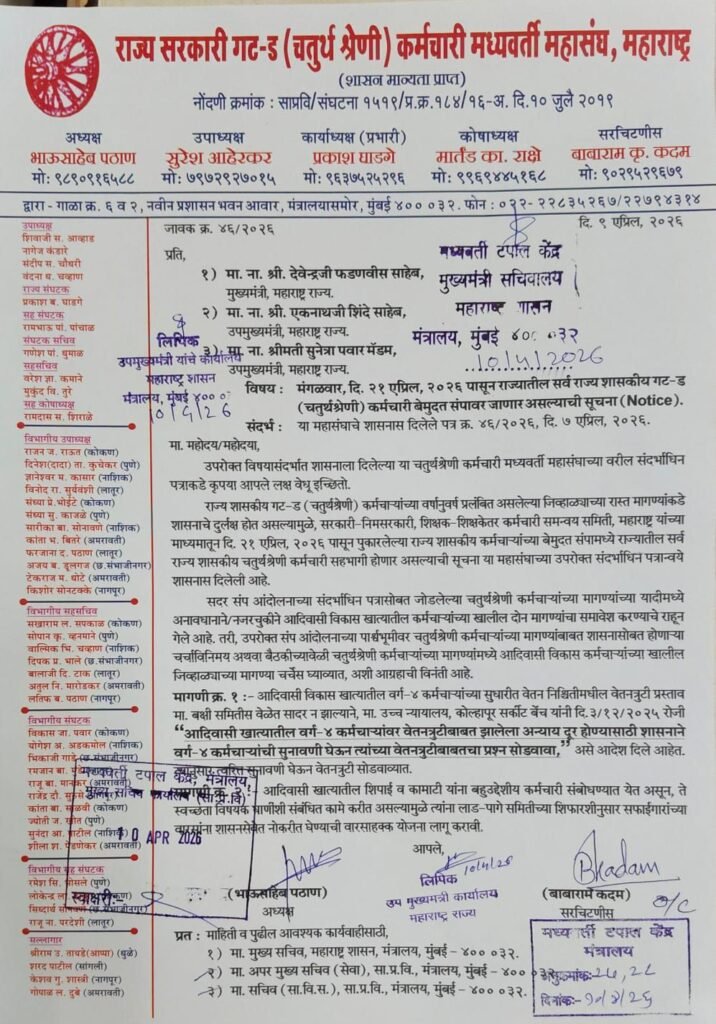 राज्य सरकारी गट-ड (चतुर्थ श्रेणी) कर्मचारी मध्यवर्ती महासंघ, महाराष्ट्र
(शासन मान्यता प्राप्त)
नोंदणी क्रमांक : साप्रवि/संघटना १५१९/प्र.क्र.१८४/१६-अ. दि.१० जुलै २०१९
अध्यक्ष
भाऊसाहेब पठाण
मो: ९८९०९१६५८८
उपाध्यक्ष
सुरेश आहेरकर
मो: ७९७२९२७०१५
कार्याध्यक्ष (प्रभारी)
प्रकाश घाडगे
मो: ९६३७५२५२९६
कोषाध्यक्ष
मार्तंड का. राक्षे
मो: ९९६९४४५१६८
सरचिटणीस
बाबाराम कृ. कदम
मो: ९०२९५२९६७९
द्वारा - गाळा क्र. ६ व २, नवीन प्रशासन भवन आवार, मंत्रालयासमोर, मुंबई ४०० ०३२. फोन : ०२२- २२८३५२६७/२२७९४३१४
उपाध्यक्ष
शिवाजी स. आव्हाड
नागेज कंडारे
संदीप स. चौधरी
वंदना ध. चव्हाण
राज्य संघटक
प्रकाश ब. घाडगे
सह संघटक
रामभाऊ पां. पांचाळ
संघटक सचिव
गणेश पां. धुमाळ
सहसचिव
वरेश ज्ञा. कमाने
मुकुंद वि. तुरे
सह कोषाध्यक्ष
रामदास स. शिराळे
विभागीय उपाध्यक्ष
राजन ज. राऊत (कोकण)
दिनेश(दादा) ता. कुचेकर (पुणे)
ज्ञानेश्वर भ. कासार (नाशिक)
विनोद रा. सुर्यवंशी (लातूर)
संध्या प्रे.भोईटे (कोकण)
संध्या सु. काजळे (पुणे)
सारीका बा. सोनवणे (नाशिक)
कांता भ. बितरे (अमरावती)
फरजाना द. पठाण (लातूर)
अजय ब. ढुलगज (छ.संभाजीनगर)
टेकराज म. थोटे (अमरावती)
किशोर सोनटक्के (नागपूर)
विभागीय सहसचिव
सखाराम ल. सपकाळ (कोकण)
सोपान कृ. व्हनमाने (पुणे)
वाल्मिक भि. चव्हाण (नाशिक)
दिपक प्र. भाले (छ.संभाजीनगर)
बालाजी दि. टाक (लातूर)
अतुल नि. मारोडकर (अमरावती)
लतिफ ब. पठाण (नागपूर)
विभागीय संघटक
विकास जा. पवार (कोकण)
योगेश अ. अडकमोल (नाशिक)
भिकाजी गाडे (छ.संभाजीनगर)
सुनंदा आ. पाटील (नाशिक)
रमेश सि. भोसले (पुणे)
राजू ना. परदेशी (लातूर)
सल्लागार
श्रीराम उ. तायडे(आप्पा) (धुळे)
शरद पाटील (सांगली)
केशव गु. शास्त्री (नागपूर)
गोपाळ ल. दुबे (अमरावती)
जावक क्र. ४६/२०२६
दि. ९ एप्रिल, २०२६
प्रति,
१) मा. ना. श्री. देवेन्द्रजी फडणवीस साहेब,
मुख्यमंत्री, महाराष्ट्र राज्य.
२) मा. ना. श्री. एकनाथजी शिंदे साहेब,
उपमुख्यमंत्री, महाराष्ट्र राज्य.
३) मा. ना. श्रीमती सुनेत्रा पवार मॅडम,
उपमुख्यमंत्री, महाराष्ट्र राज्य.
मध्यवर्ती टपाल केंद्र
मुख्यमंत्री सचिवालय
महाराष्ट्र शासन
मंत्रालय, मुंबई ४०० ०३२
10/4/2026
लिपिक
उपमुख्यमंत्री यांचे कार्यालय
महाराष्ट्र शासन
मंत्रालय, मुंबई ४०० ०
10/4/26
विषय : मंगळवार, दि. २१ एप्रिल, २०२६ पासून राज्यातील सर्व राज्य शासकीय गट-ड
(चतुर्थश्रेणी) कर्मचारी बेमुदत संपावर जाणार असल्याची सूचना (Notice).
संदर्भ : या महासंघाचे शासनास दिलेले पत्र क्र. ४६/२०२६, दि. ७ एप्रिल, २०२६.
मा. महोदय/महोदया,
उपरोक्त विषयासंदर्भात शासनाला दिलेल्या या चतुर्थश्रेणी कर्मचारी मध्यवर्ती महासंघाच्या वरील संदर्भाधिन
पत्राकडे कृपया आपले लक्ष वेधू इच्छितो.
राज्य शासकीय गट-ड (चतुर्थश्रेणी) कर्मचाऱ्यांच्या वर्षानुवर्ष प्रलंबित असलेल्या जिव्हाळ्याच्या रास्त मागण्यांकडे
शासनाचे दुर्लक्ष होत असल्यामुळे, सरकारी-निमसरकारी, शिक्षक-शिक्षकेतर कर्मचारी समन्वय समिती, महाराष्ट्र यांच्या
माध्यमातून दि. २१ एप्रिल, २०२६ पासून पुकारलेल्या राज्य शासकीय कर्मचाऱ्यांच्या बेमुदत संपामध्ये राज्यातील सर्व
राज्य शासकीय चतुर्थश्रेणी कर्मचारी सहभागी होणार असल्याची सूचना या महासंघाच्या उपरोक्त संदर्भाधिन पत्रान्वये
शासनास दिलेली आहे.
सदर संप आंदोलनाच्या संदर्भाधिन पत्रासोबत जोडलेल्या चतुर्थश्रेणी कर्मचाऱ्यांच्या मागण्यांच्या यादीमध्ये
अनावधानाने/नजरचुकीने आदिवासी विकास खात्यातील कर्मचाऱ्यांच्या खालील दोन मागण्यांचा समावेश करण्याचे राहून
गेले आहे. तरी, उपरोक्त संप आंदोलनाच्या पार्श्वभूमीवर चतुर्थश्रेणी कर्मचाऱ्यांच्या मागण्यांबाबत शासनासोबत होणाऱ्या
चर्चाविनिमय अथवा बैठकीच्यावेळी चतुर्थश्रेणी कर्मचाऱ्यांच्या मागण्यांमध्ये आदिवासी विकास कर्मचाऱ्यांच्या खालील
जिव्हाळ्याच्या मागण्या चर्चेस घ्याव्यात, अशी आग्रहाची विनंती आहे.
मागणी क्र. १ :- आदिवासी विकास खात्यातील वर्ग-४ कर्मचाऱ्यांच्या सुधारीत वेतन निश्चितीमधील वेतनत्रुटी प्रस्ताव
मा. बक्षी समितीस वेळेत सादर न झाल्याने, मा. उच्च न्यायालय, कोल्हापूर सर्कीट बेंच यांनी दि.3/१२/२०२५ रोजी
"आदिवासी विकास खात्यातील वर्ग-४ कर्मचाऱ्यांवर वेतनत्रुटीबाबत झालेला अन्याय दूर होण्यासाठी शासनाने
वर्ग-४ कर्मचाऱ्यांची सुनावणी घेऊन त्यांच्या वेतनत्रुटीबाबतचा प्रश्न सोडवावा," असे आदेश दिले आहेत.
त्यानुसार त्वरित सुनावणी घेऊन वेतनत्रुटी सोडवाव्यात.
मागणी क्र. २ :- आदिवासी खात्यातील शिपाई व कामाटी यांना बहुउद्देशीय कर्मचारी संबोधण्यात येत असून, ते
स्वच्छता विषयक घाणीशी संबंधित कामे करीत असल्यामुळे त्यांना लाड-पागे समितीच्या शिफारशीनुसार सफाईगारांच्या
वारसांना शासनसेवेत नोकरीत घेण्याची वारसाहक्क योजना लागू करावी.
मध्यवर्ती टपाल केंद्र, मंत्रालय,
मुख्य सचिव कार्यालय (सा.प्र.वि.)
10 APR 2026
स्वाक्षरी:-
आपले,
(भाऊसाहेब पठाण)
अध्यक्ष
10/4/26
लिपिक
उप मुख्यमंत्री कार्यालय
महाराष्ट्र राज्य
Bkadam
(बाबाराम कदम)
सरचिटणीस
o/c
प्रत : माहिती व पुढील आवश्यक कार्यवाहीसाठी,
१) मा. मुख्य सचिव, महाराष्ट्र शासन, मंत्रालय, मुंबई - ४०० ०३२.
२) मा. अपर मुख्य सचिव (सेवा), सा.प्र.वि., मंत्रालय, मुंबई - ४०० ०३२.
३) मा. सचिव (सा.वि.स.), सा.प्र.वि., मंत्रालय, मुंबई - ४०० ०३२.
मध्यवर्ती टपाल केंद्र
मंत्रालय
अनुक्रमांक:-
दिनांक:-